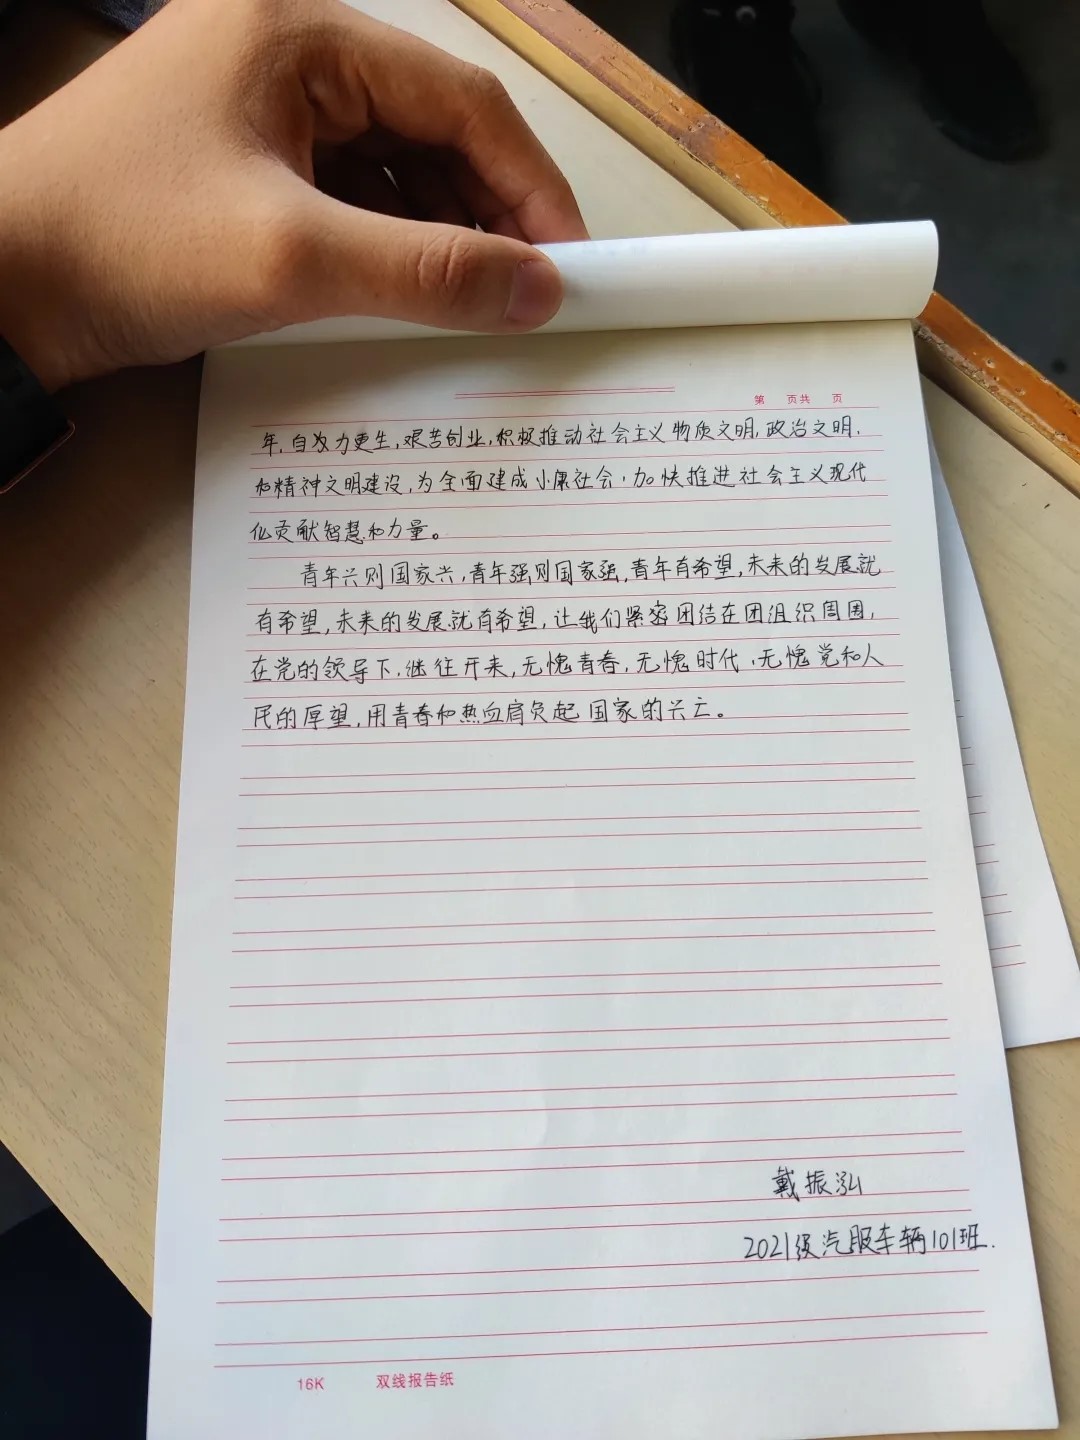 第 页共 页
年,自为力更生,艰苦创业,积极推动社会主义物质文明,政治文明,
和精神文明建设,为全面建成小康社会,加快推进社会主义现代
化贡献智慧和力量。
青年兴则国家兴,青年强则国家强,青年有希望,未来的发展就
有希望,未来的发展就有希望,让我们紧密团结在团组织周围,
在党的领导下,继往开来,无愧青春,无愧时代,无愧党和人
民的厚望,用青春和热血肩负起国家的兴亡。
戴振泓
2021级汽服车辆101班.
16K 双线报告纸